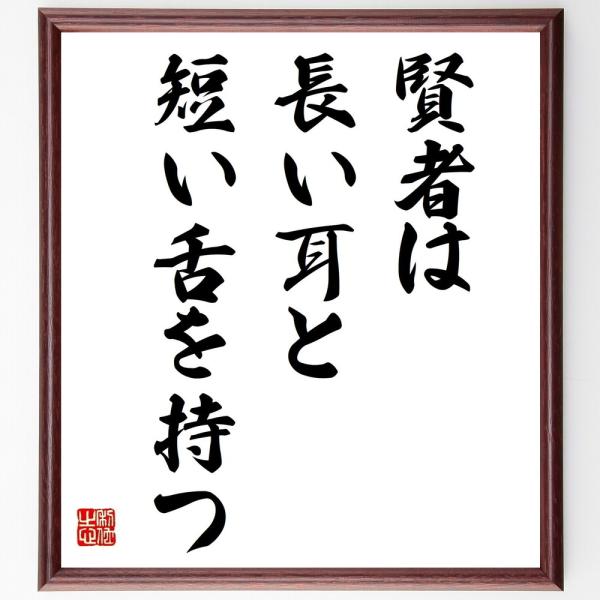 賢者は
長い耳と
短い舌を持つ